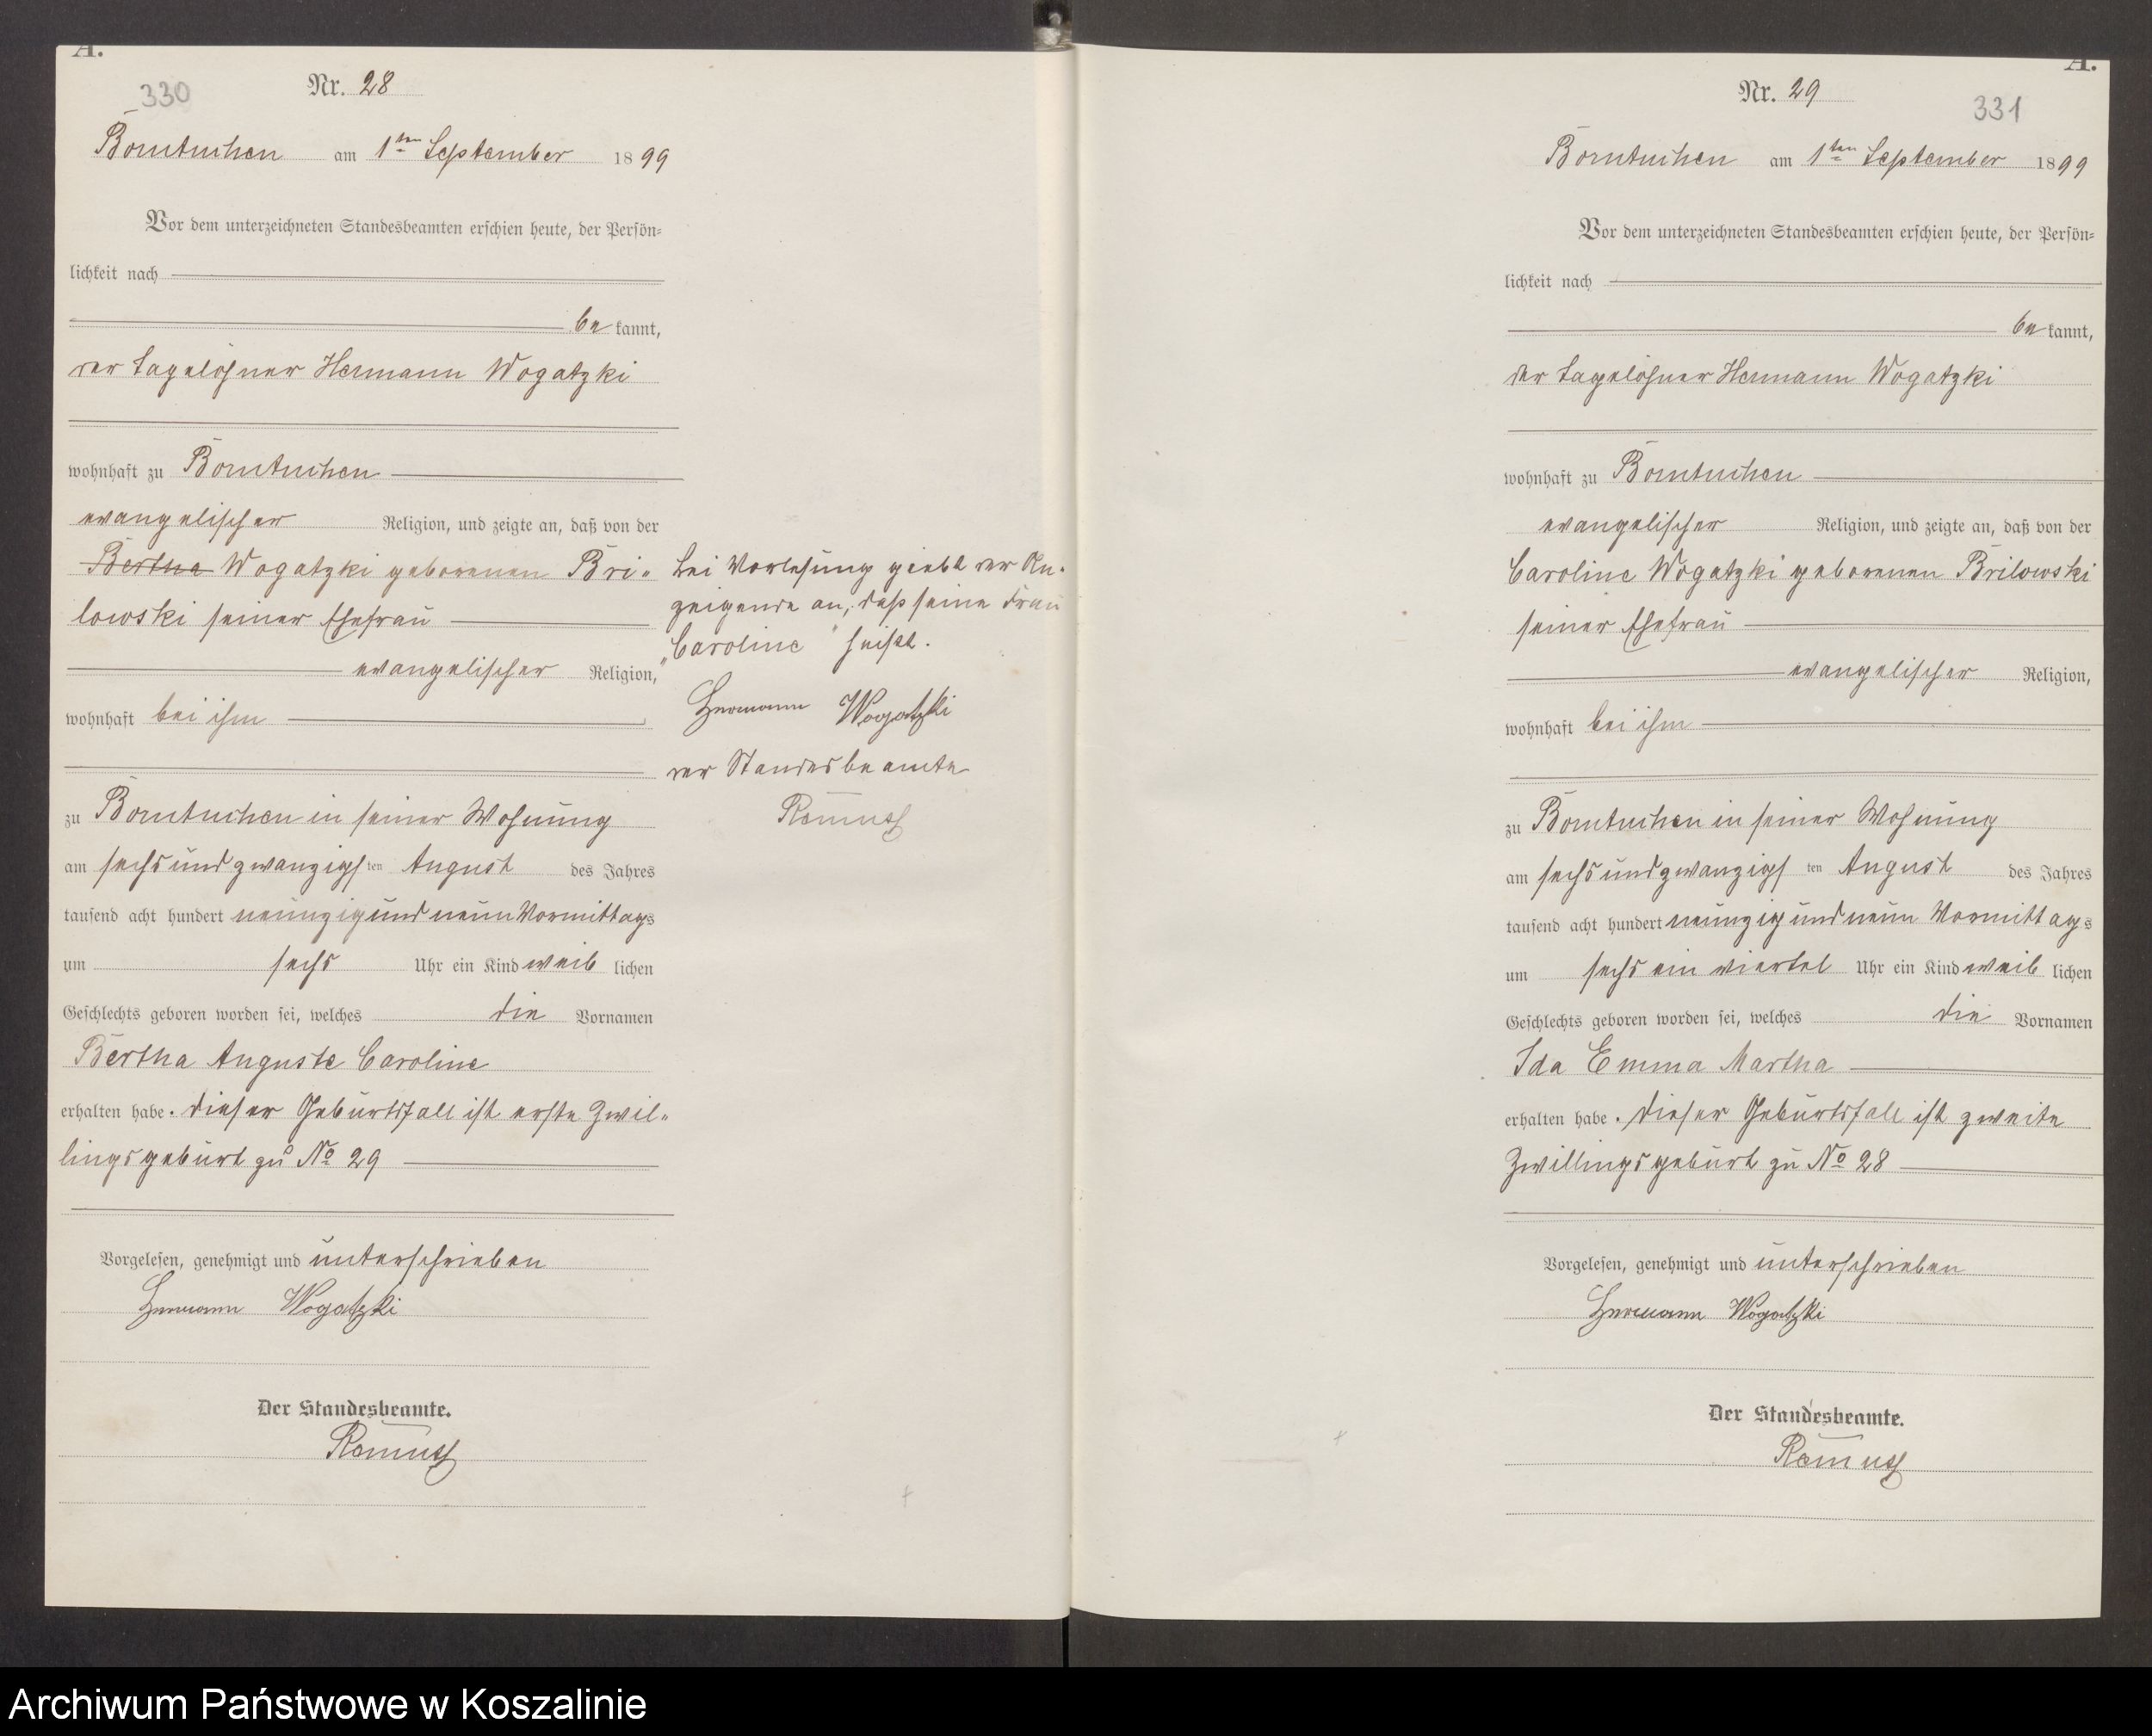 A.
330
Nr. 28
Borntuchen am 1ten September 1899
Vor dem unterzeichneten Standesbeamten erschien heute, der Persön-
lichkeit nach
be kannt,
der Tagelöhner Hermann Wogatzki
wohnhaft zu Borntuchen
evangelischer Religion, und zeigte an, daß von der
Bertha Wogatzki geborenen Bri-
lowski seiner Ehefrau
evangelischer Religion,
wohnhaft bei ihm
zu Borntuchen in seiner Wohnung
am sechsundzwanzigsten August des Jahres
tausend acht hundert neunzig und neun Vormittags
um sechs Uhr ein Kind weiblichen
Geschlechts geboren worden sei, welches die Vornamen
Bertha Auguste Caroline
erhalten habe. Dieser Geburtsfall ist erste Zwil-
lingsgeburt zu No 29
Vorgelesen, genehmigt und unterschrieben
Hermann Wogatzki
Der Standesbeamte.
Ramuss
Bei Vorlesung giebt der An-
zeigende an, daß seine Frau
"Caroline" heißt.
Hermann Wogatzki
der Standesbeamte
Ramuss
A.
Nr. 29
331
Borntuchen am 1ten September 1899
Vor dem unterzeichneten Standesbeamten erschien heute, der Persön-
lichkeit nach
be kannt,
der Tagelöhner Hermann Wogatzki
wohnhaft zu Borntuchen
evangelischer Religion, und zeigte an, daß von der
Caroline Wogatzki geborenen Brilowski
seiner Ehefrau
evangelischer Religion,
wohnhaft bei ihm
zu Borntuchen in seiner Wohnung
am sechsundzwanzigsten August des Jahres
tausend acht hundert neunzig und neun Vormittags
um sechs ein viertel Uhr ein Kind weiblichen
Geschlechts geboren worden sei, welches die Vornamen
Ida Emma Martha
erhalten habe. Dieser Geburtsfall ist zweite
Zwillingsgeburt zu No 28
Vorgelesen, genehmigt und unterschrieben
Hermann Wogatzki
Der Standesbeamte.
Ramuss
Archiwum Państwowe w Koszalinie